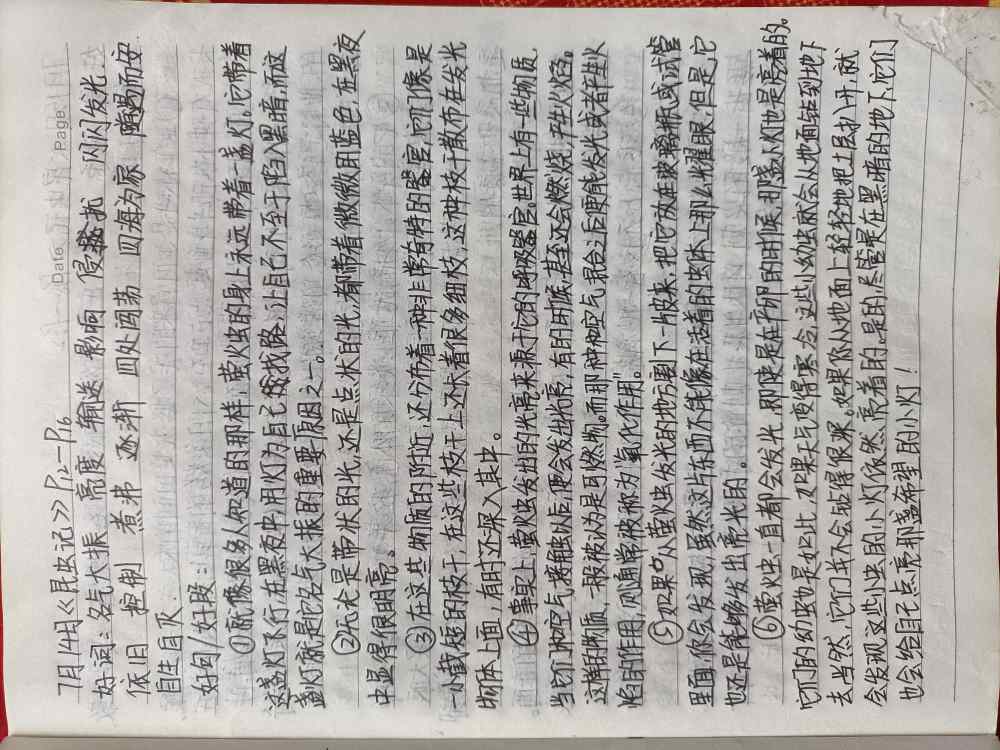 Date Page
7月14日《昆虫记》P12-P16
好词：名气大振 亮度 输送 影响 侵扰 闪闪发光
依旧 控制 煮沸 逐渐 四处闯荡 四海为家 随遇而安
自生自灭
好句/好段：
①就像很多人知道的那样，萤火虫的身上永远带着一盏灯。它带着
这盏灯飞行在黑夜中，用灯为自己找路，让自己不至于陷入黑暗，而这
盏灯就是它名气大振的重要原因之一。
②无论是带状的光，还是点状的光，都带着微微的蓝色，在黑夜
中显得很明亮。
③在这些物质的附近，还分布着一种非常奇特的器官，它们像是
一小截短的枝干，在这些枝干上还长着很多细枝，这种枝干散布在发光
物体上面，有时还深入其中。
④事实上，萤火虫发出的光亮来源于它的呼吸器官。世界上有一些物质，
当它们和空气接触以后，便会发出光亮，有的时候，甚至还会燃烧，产生火焰。
这样的物质，一般被认为是可燃物。而那种和空气混合后便能发光或者产生火
焰的作用，则通常被称为"氧化作用"。
⑤如果从萤火虫发光的地方割下一片皮来，把它放在玻璃瓶或试管
里面，你会发现，虽然这片东西不能像在活着的虫体上那么耀眼，但是，它
也还是能够发出亮光的。
⑥萤火虫一直都会发光，即使是在产卵的时候，那盏小灯也是亮着的。
它们的幼虫也是如此，如果天气变得寒冷，这些小幼虫就会从地面钻到地下
去，当然，它们并不会钻得很深。如果你从地面上轻轻地把土层扒开，就
会发现这些小虫的小灯依然亮着的。是的，尽管是在黑暗的地下，它们
也会给自己点亮那盏希望的小灯！